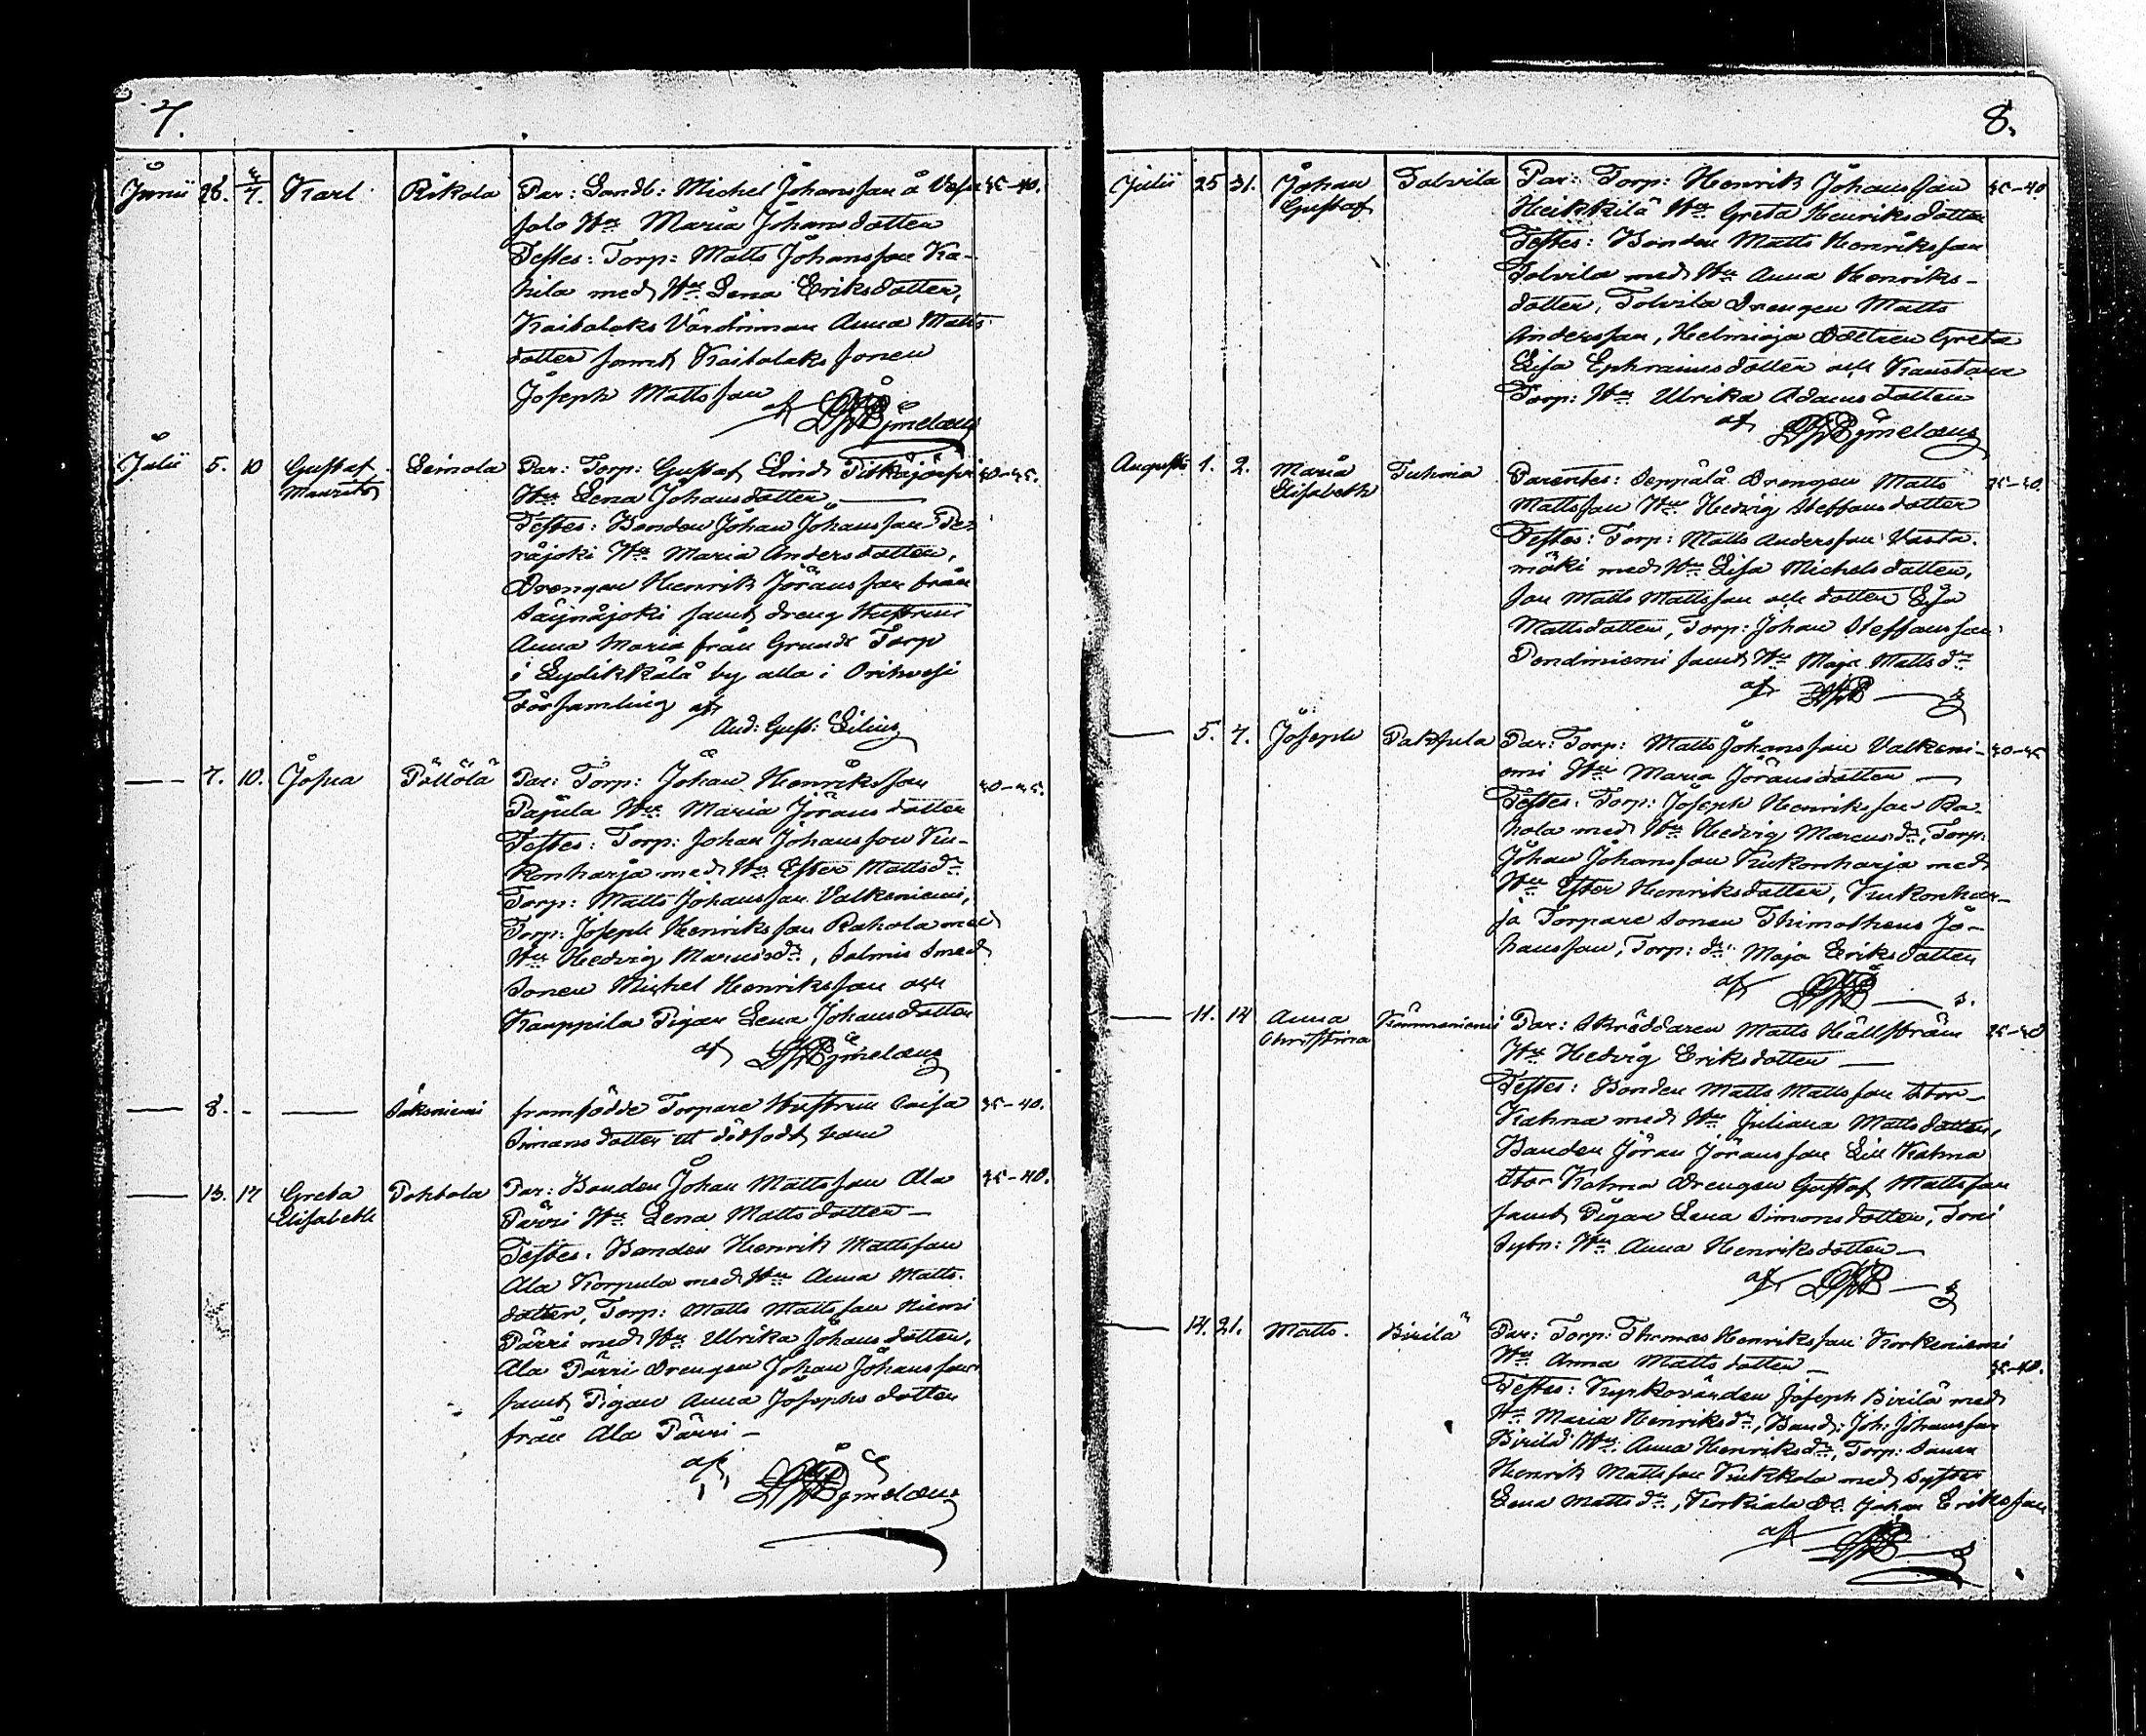 7.
Junii 28. 4/7. Karl Rökola Par: Landb: Michel Johansson å Vesi 35-40.
salo H:u Maria Johansdotter
Testes: Torp: Matts Johansson Ka-
hila med H:u Lena Eriksdotter,
Kaitalaks Värdinnan Anna Matts
dotter samt Kaitalaks sonen
Joseph Mattsson
af Björnelaus
Julii 5. 10 Gustaf Leinola Par: Torp: Gustaf Lind Pitkäjärvi 40-45.
Mauritz H:u Lena Johansdotter
Testes: Bonden Johan Johansson Pe-
räjoki H:u Maria Andersdotter,
Drengen Henrik Jöransson från
Säynäjoki samt dreng Hustrun
Anna Maria från Grunds Torp
i Lydikkälä by alla i Orihvesi
Församling af
And: Gust: Lilius
7. 10. Josua Pöllölä Par: Torp: Johan Henriksson 40-45.
Pajula H:u Maria Jöransdotter
Testes: Torp: Johan Johansson Ku-
konharja med H:u Ester Mattsd:r
Torp: Matts Johansson Valkeniemi,
Torp: Joseph Henriksson Rahola med
H:u Hedvig Marcusd:r, Salmis Smed
Sonen Michel Henriksson och
Kauppila Pigan Lena Johansdotter
af Björnelaus
8. - Säkoniemi framfödde Torpare Hustrun Caisa 35-40.
Simonsdotter ett dödfödt barn
13. 17 Greta Pohtola Par: Bonden Johan Mattsson Ala 35-40.
Elisabeth Pärri H:u Lena Mattsdotter
Testes: Bonden Henrik Mattsson
Ala Korpula med H:u Anna Matts-
dotter, Torp: Matts Mattsson Niemi
Pärri med H:u Ulrika Johansdotter,
Ala Pärri Drengen Johan Johansson
samt Pigan Anna Josephsdotter
från Ala Pärri
af Björnelaus
8.
Julii 25 31. Johan Talvila Par: Torp: Henrik Johansson 35-40
Gustaf Heikkilä H:u Greta Henriksdotter
Testes: Bonden Matts Henriksson
Talvila med H:u Anna Henriks-
dotter, Talvila Drengen Matts
Andersson, Helmioja Dottren Greta
Lisa Ephraimsdotter och Kaustara
Torp: H:u Ulrika Adamsdotter
af Björnelaus
Augusti 1. 2. Maria Tuhria Parentes: Seppälä Drengen Matts 25-30.
Elisabeth Mattsson H:u Hedvig Steffansdotter
Testes: Torp: Matts Andersson Vasta-
mäki med H:u Lisa Michelsdotter,
son Matts Mattsson och dotter Lisa
Mattsdotter, Torp: Johan Steffansson
Pendiniemi samt H:u Maja Mattsd:r
af
5. 7. Joseph Pakkula Par: Torp: Matts Johansson Valkeni- 40-45
emi H:u Maria Jöransdotter
Testes: Torp: Joseph Henriksson Ra-
hola med H:u Hedvig Marcusd:r, Torp:
Johan Johansson Kukonharja med
H:u Ester Henriksdotter, Kukonhar-
ja Torpare Sonen Thimotheus Jo-
hansson, Torp: d:r Maja Eriksdotter
af
11. 14 Anna Kämmeniemi Par: Skräddaren Matts Hällström 25-30
Christina H:u Hedvig Eriksdotter
Testes: Bonden Matts Mattsson Stor-
Kahma med H:u Juliana Mattsdotter,
Bonden Jöran Jöransson Lill Kahma
Stor Kahma Drengen Gustaf Mattsson
samt Pigan Lena Simonsdotter, Toni
Sytn: H:u Anna Henriksdotter
af
14. 21. Matts. Birilä Par: Torp: Thomas Henriksson Korkeniemi
H:u Anna Mattsdotter 35-40.
Testes: Kyrkovärden Joseph Birilä med
H:u Maria Henriksd:r, Bond: Joh: Johansson
Birilä H:u Anna Henriksd:r, Torp: Sonen
Henrik Mattsson Kukkola med Syster
Lena Mattsd:r, Korkiala Dr: Johan Eriksson
af